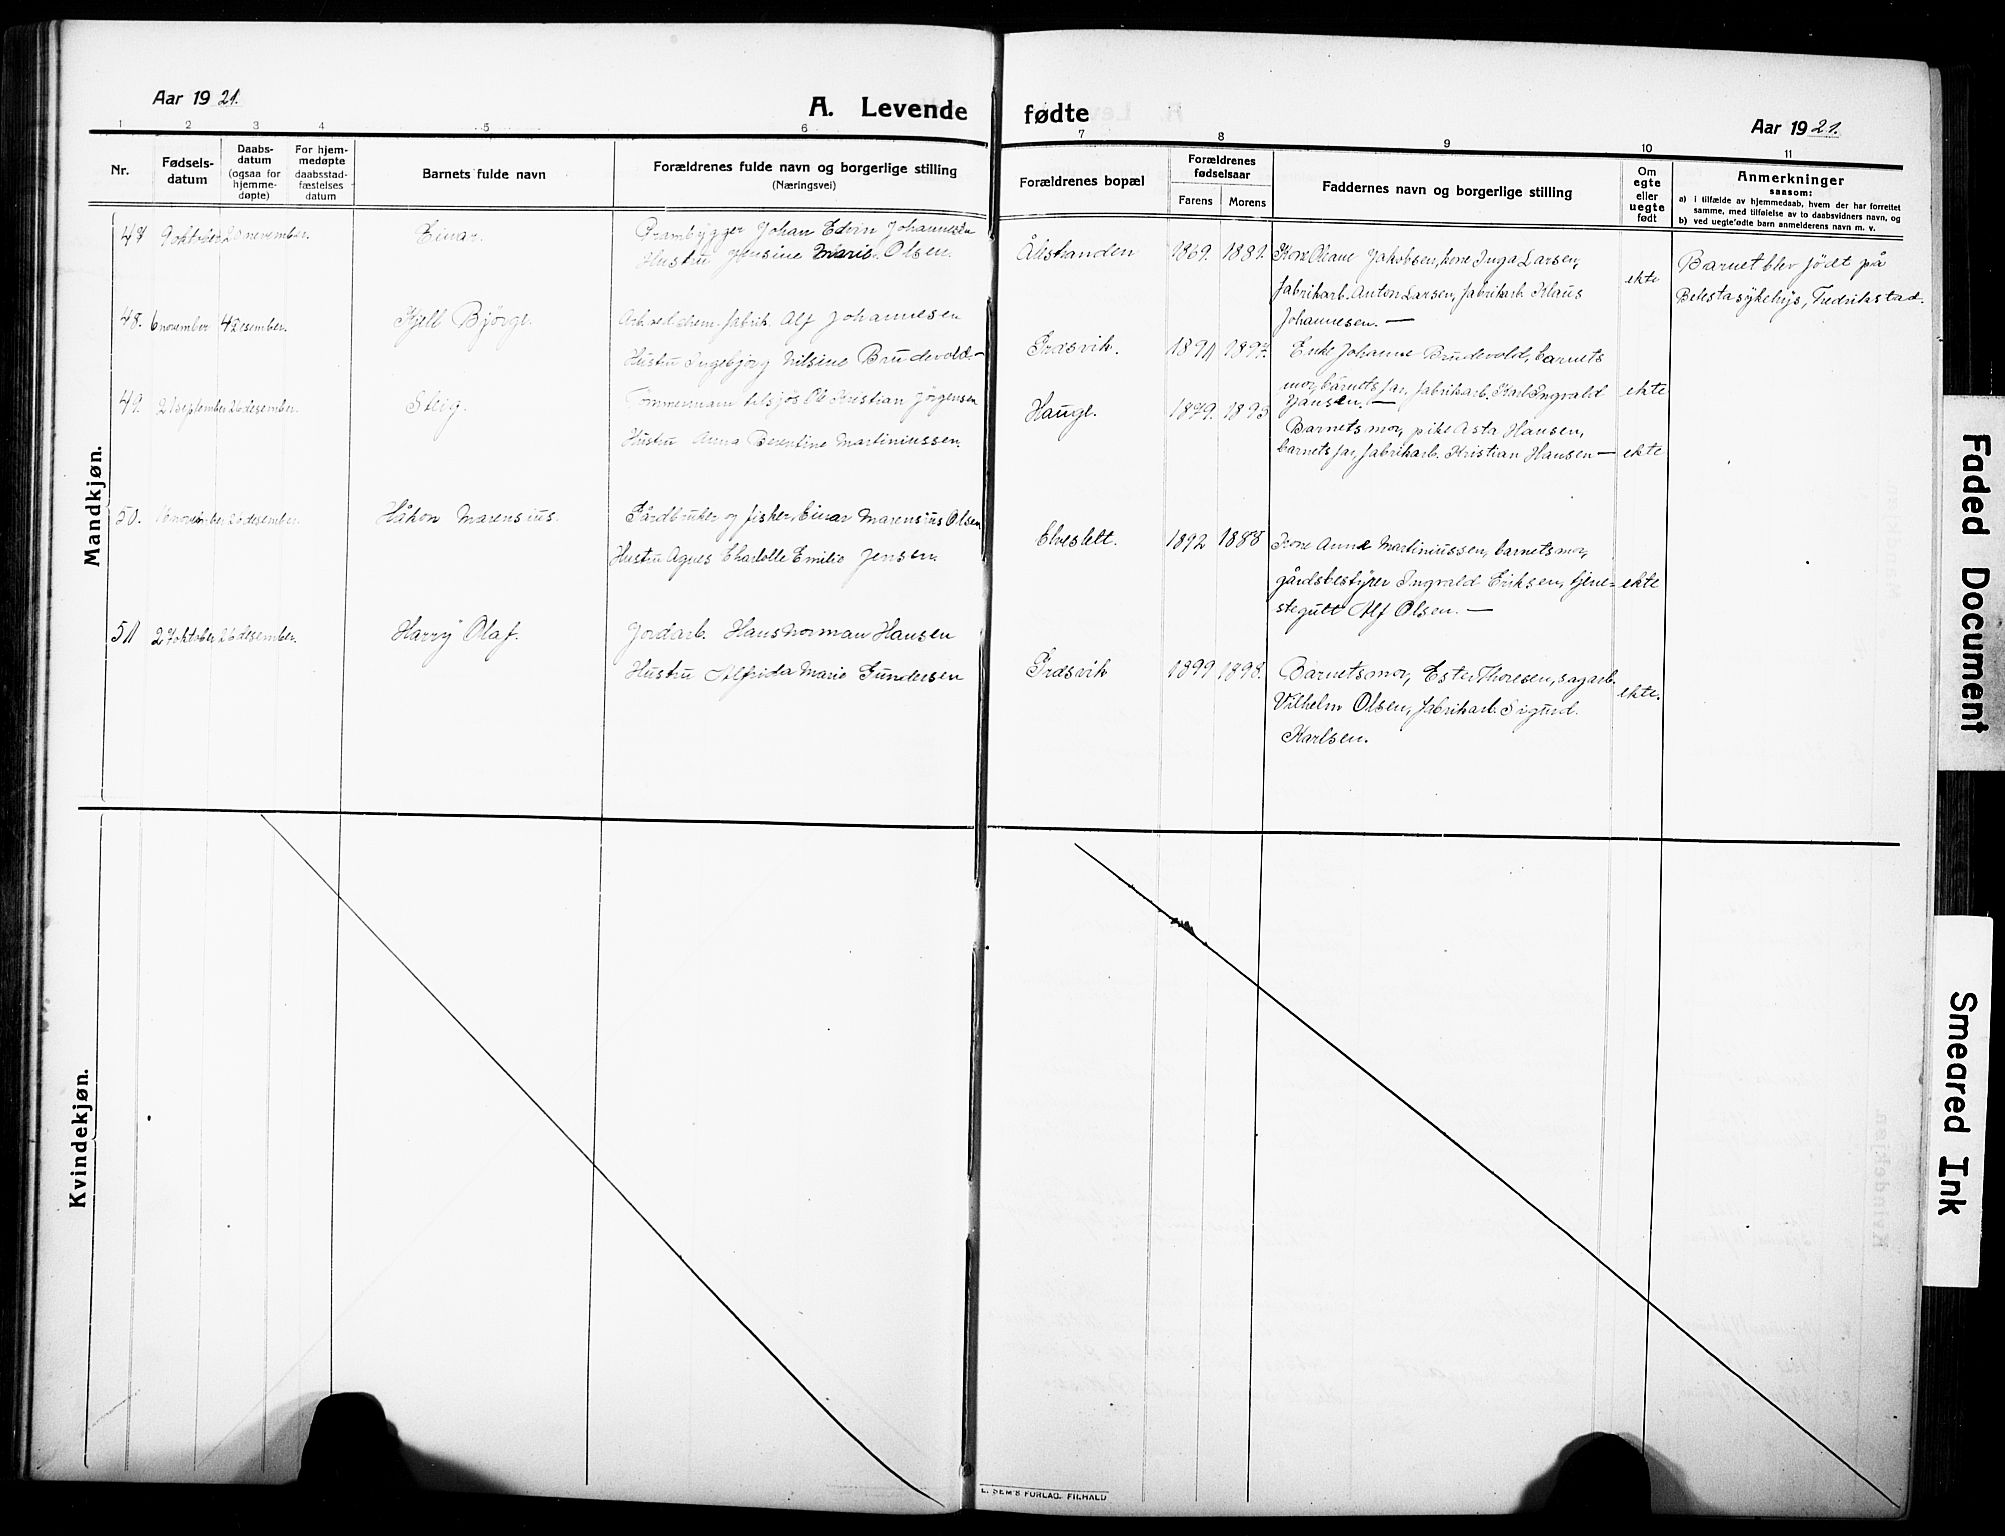 Aar 1921.
A. Levende fødte
Aar 1921.
1 2 3 4 5 6 7 8 9 10 11
Nr.
Fødsels-
datum
Daabs-
datum
(ogsaa for
hjemme-
døpte)
For hjem-
medøpte
daabsstad-
fæstelses
datum
Barnets fulde navn
Forældrenes fulde navn og borgerlige stilling
(Næringsvei)
Forældrenes bopæl
Forældrenes
fødselsaar
Farens Morens
Faddernes navn og borgerlige stilling
Om
egte
eller
uegte
født
Anmerkninger
saasom:
a) i tilfælde av hjemmedaab, hvem der har forrettet
samme, med tilføielse av to daabsvidners navn, og
b) ved uegte fødte barn anmelderens navn m. v.
Mandkjøn.
47 9 oktober 20 november. Einar.
Prambygger Johan Edvin Johannesen
Hustru Jensine Marie Olsen.
Ålestranden 1869. 1881.
Kone Oleane Jakobsen, kone Inga Larsen,
fabrikarb. Anton Larsen, fabrikarb. Klaus
Johannesen. —
ekte
Barnet blev født på
Belestasykehys, Fredrikstad.
48. 6 november 4 desember. Kjell Björge.
Arb. ved chem. fabrik. Alf Johannesen
Hustru Ingebjörg Nilsine Brudevold. —
Gresvik. 1891 1897.
Enke Johanne Brudevold, barnets
mor, barnets far, fabrikarb. Karl Ingvald
Jansen. —
ekte
49. 21 september 26 desember. Steig.
Tömmermann tilsjøs Ole Kristian Jörgensen
Hustru Anna Berentine Martiniussen.
Hauge. 1879. 1893
Barnets mor, pike Asta Hansen,
barnets far, fabrikarb. Kristian Hansen —
ekte
50. 16 november 26 desember. Håkon Marensius.
Gårdbruker og fisker, Einar Marensius Olsen
Hustru Agnes Charlotte Emilie Jensen.
Elveslett. 1892 1888
Kone Anna Martiniussen, barnets mor,
gårdsbestyrer Ingvald Eriksen, tjene=
stegutt Alf Olsen. —
ekte
51 27 oktober 26 desember. Harry Olaf.
Jordarb. Hans Norman Hansen
Hustru Alfrida Marie Gundersen
Gresvik 1899 1898.
Barnets mor, Ester Thoresen, sagarb.
Vilhelm Olsen, fabrikarb. Sigurd
Karlsen.
ekte.
Kvindekjøn.
E. SEM'S FORLAG. FR.HALD
Faded Document
Smeared Ink